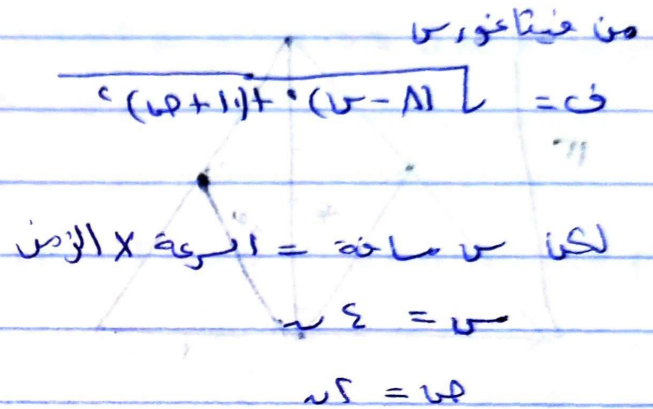 من فيثاغورس
ف = √(٨ - س)² + (١٠ + ص)²
لكن س مسافة = السرعة × الزمن
س = ٤ ن
ص = ٢ ن